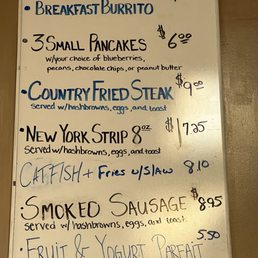 • BREAKFAST BURRITO
• 3 SMALL PANCAKES $6.00
w/your choice of blueberries,
pecans, chocolate chips, or peanut butter
• COUNTRY FRIED STEAK $9.00
served w/hashbrowns, eggs, and toast
• NEW YORK STRIP 8oz $17.25
served w/hashbrowns, eggs, and toast
CATFISH + Fries w/SLAW 8.10
SMOKED SAUSAGE $8.95
served w/ hashbrowns, eggs, and toast
• FRUIT & YOGURT PARFAIT 5.50